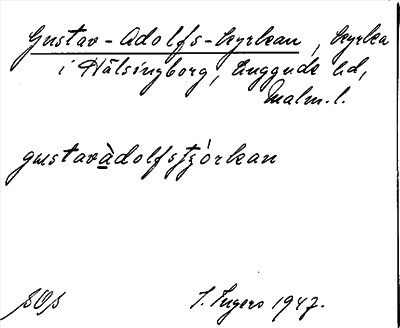 Gustav-Adolfs-kyrkan, kyrka
i Hälsingborg, Luggude hd,
Malm. l.
gustavàdolfstjórkan
1947.